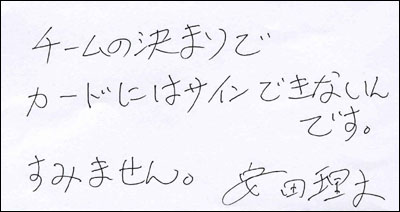 チームの決まりで
カードにはサインできないん
です。
すみません。 安田理大